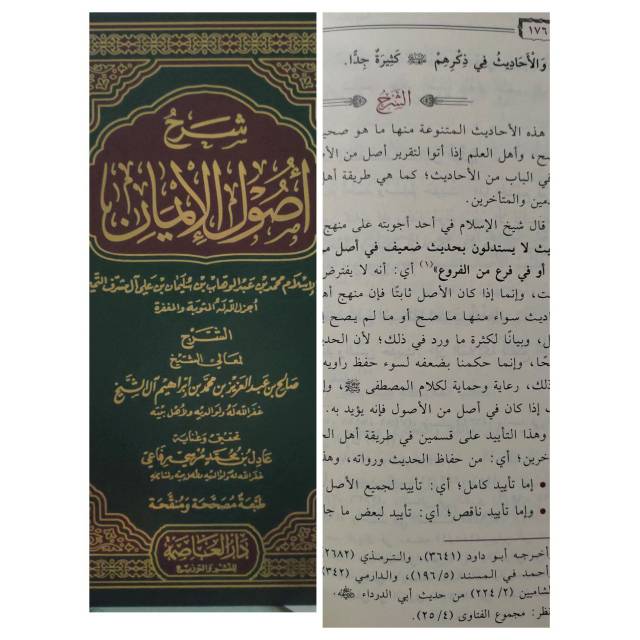 شرح
أصول الإيمان
لإسلام محمد بن عبد الوهاب بن سليمان بن علي آل مشرف التمي
أجزل الله له المثوبة والمغفرة
الشرح
لمعالي الشيخ
صالح بن عبد العزيز بن محمد بن إبراهيم آل الشيخ
غفر الله له ولوالديه ولأهل بيته
تحقيق وعناية
عادل بن محمد مرسي رفاعي
غفر الله له ولوالديه ولأهل بيته
طبعة مصححة ومنقحة
دار العاصمة
للنشر والتوزيع
١٧٦
وَالأَحَادِيثُ فِي ذِكْرِهِمْ ﷺ كَثِيرَةٌ جِدًّا.
الشَّرْحُ
هذه الأحاديث المتنوعة منها ما هو صحي
صح، وأهل العلم إذا أتوا لتقرير أصل من الأ
في الباب من الأحاديث؛ كما هي طريقة أهل
دمين والمتأخرين.
قال شيخ الإسلام في أحد أجوبته على منهج
يث لا يستدلون بحديث ضعيف في أصل من
أو في فرع من الفروع»(١) أي: أنه لا يفترض
ت، وإنما إذا كان الأصل ثابتًا فإن منهج أه
ديث سواء منها ما صح أو ما لم يصح إ
ل، وبيانًا لكثرة ما ورد في ذلك؛ لأن الحد
حًا، وإنما حكمنا بضعفه لسوء حفظ راويه
ذلك، رعاية وحماية لكلام المصطفى ﷺ، وإ
إذا كان في أصل من الأصول فإنه يؤيد به.
وهذا التأييد على قسمين في طريقة أهل الح
خرين؛ أي: من حفاظ الحديث ورواته، وهذ
• إما تأييد كامل؛ أي: تأييد لجميع الأصل
• وإما تأييد ناقص؛ أي: تأييد لبعض ما جا
أخرجه أبو داود (٣٦٤١)، والترمذي (٢٦٨٢
أحمد في المسند (١٩٦/٥)، والدارمي (٣٤٢
لشاميين (٢٢٤/٢) من حديث أبي الدرداء ﷺ.
نظر: مجموع الفتاوى (٢٥/٤).